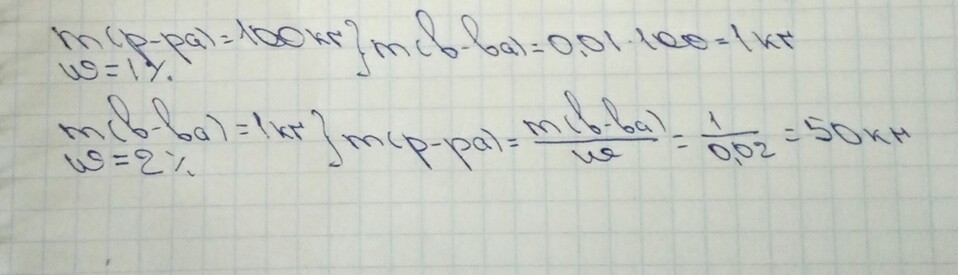 m(р-ра)=100кг} m(в-ва)=0,01·100=1кг
ω=1%
m(в-ва)=1кг} m(р-ра)=m(в-ва)/ω=1/0,02=50кг
ω=2%